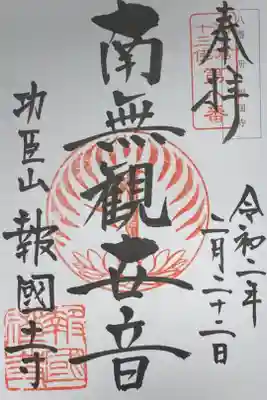 奉拝
令和二年
二月二十二日
南無観世音
功臣山
報國寺